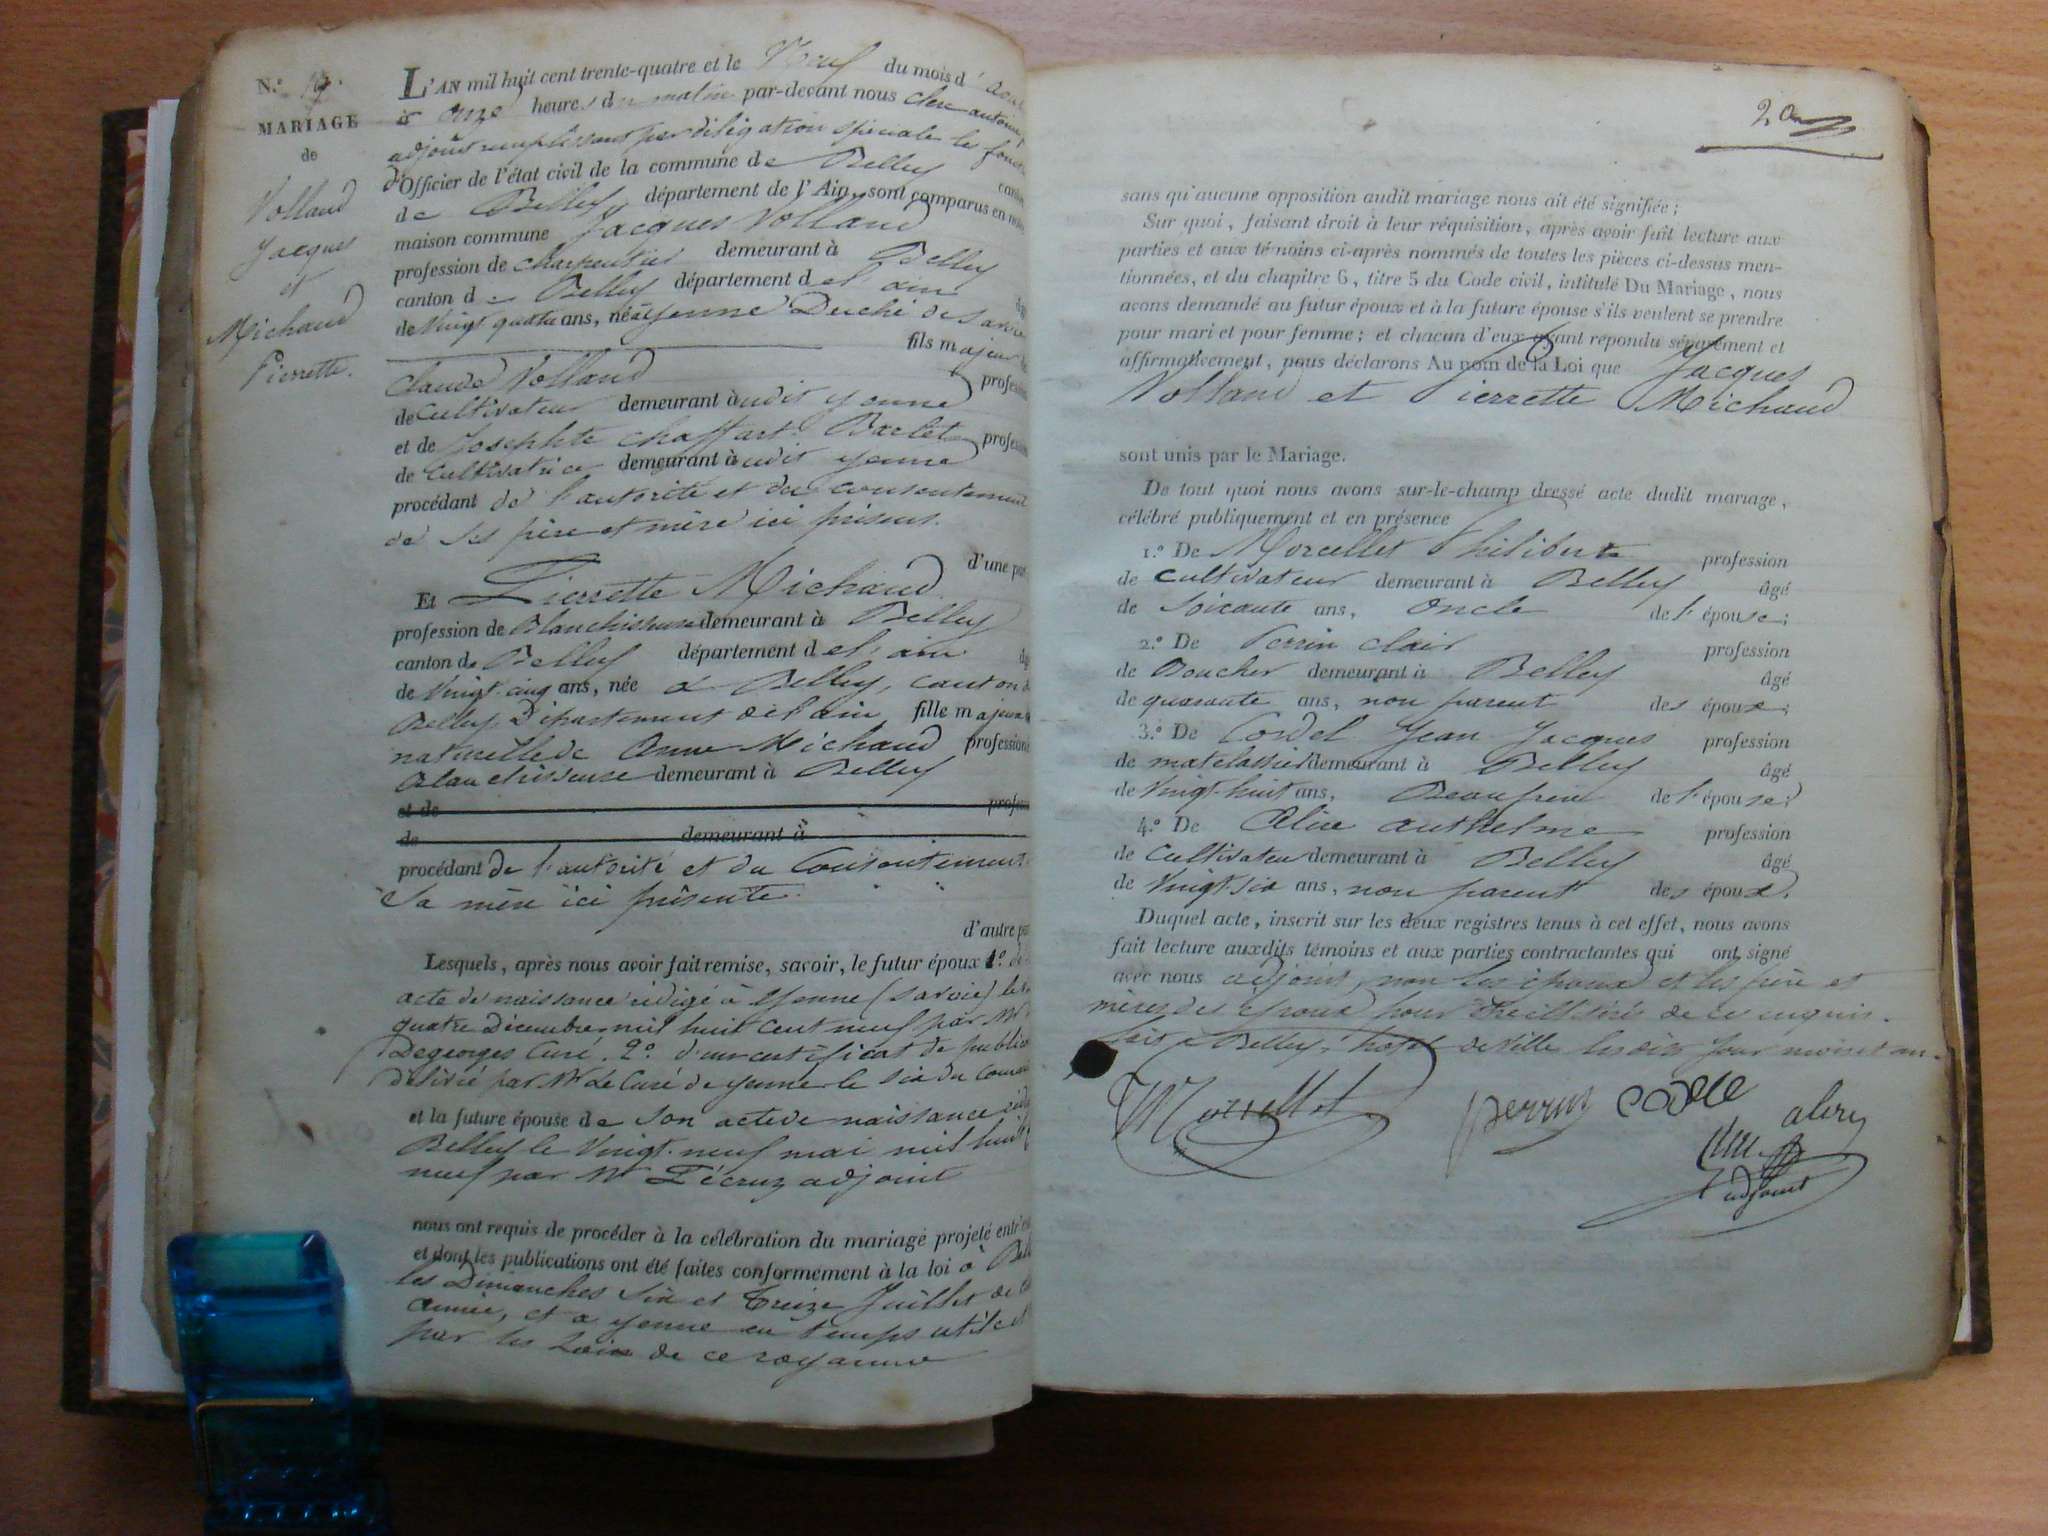 N.º 19.
MARIAGE
de
Volland
Jacques
et
Michaud
Pierrette.
L'AN mil huit cent trente-quatre et le Neuf du mois d'aout
à onze heures du matin par-devant nous
adjoint remplissant par délégation spéciale les
d'Officier de l'état civil de la commune de Belley canton
de Belley, département de l'Ain, sont comparus en notre
maison commune Jacques Volland
profession de charpentier demeurant à Belley
canton de Belley département de l'ain
de Vingt quatre ans, né à yenne Duché de Savoie
fils majeur de
Claude Volland profession
de Cultivateur demeurant audit yenne
et de Josephte chaffart Barlet profession
de Cultivatrice demeurant audit yenne
procédant de l'autorité et du consentement
de ses père et mère ici présens.
d'une part
Et Pierrette Michaud
profession de Blanchisseuse demeurant à Belley
canton de Belley département de l'ain. âgé
de Vingt-cinq ans, née à Belley, canton de
Belley, Département de l'ain, fille majeure
naturelle de Anne Michaud profession
Blanchisseuse demeurant à Belley
et de profession
de demeurant à
procédant de l'autorité et du Consentement
Sa mère ici présente.
d'autre part
Lesquels, après nous avoir fait remise, savoir, le futur époux 1.º de
acte de naissance rédigé à Yenne (Savoie) le
quatre Décembre mil huit cent neuf par Mr
Degeorges Curé. 2º. d'un certificat de
délivré par Mr le Curé de yenne le six du
et la future épouse de son acte de naissance
Belley le Vingt-neuf mai mil huit
neuf par Mr Técruz adjoint
nous ont requis de procéder à la célébration du mariage projeté entr'eux
et dont les publications ont été faites conformement à la loi à
les Dimanches Six et Treize Juillet de
année, et à yenne en temps utile et
par les Lois de ce royaume
20
sans qu'aucune opposition audit mariage nous ait été signifiée;
Sur quoi, faisant droit à leur réquisition, après avoir fait lecture aux
parties et aux témoins ci-après nommés de toutes les pièces ci-dessus men-
tionnées, et du chapitre 6, titre 5 du Code civil, intitulé Du Mariage, nous
avons demandé au futur époux et à la future épouse s'ils veulent se prendre
pour mari et pour femme; et chacun d'eux ayant répondu séparément et
affirmativement, nous déclarons Au nom de la Loi que Jacques
Volland et Pierrette Michaud
sont unis par le Mariage.
De tout quoi nous avons sur-le-champ dressé acte dudit mariage,
célébré publiquement et en présence
1.º De Morcellet Philibert profession
de cultivateur demeurant à Belley âgé
de soixante ans, oncle de l'épouse;
2.º De Perrin clair profession
de Boucher demeurant à Belley âgé
de quarante ans, non parent des époux;
3.º De Cordel Jean Jacques profession
de matelassier demeurant à Belley âgé
de Vingt-huit ans, Beaufrère de l'épouse;
4.º De anthelme profession
de Cultivateur demeurant à Belley âgé
de Vingt-six ans, non parent des époux.
Duquel acte, inscrit sur les deux registres tenus à cet effet, nous avons
fait lecture auxdits témoins et aux parties contractantes qui ont signé
avec nous adjoint, non les époux et les père et
mères des époux pour être illitérés de ce enquis.
fait à Belley, hotel de Ville les dits jour mois et an.
Morcellet perrin
adjoint